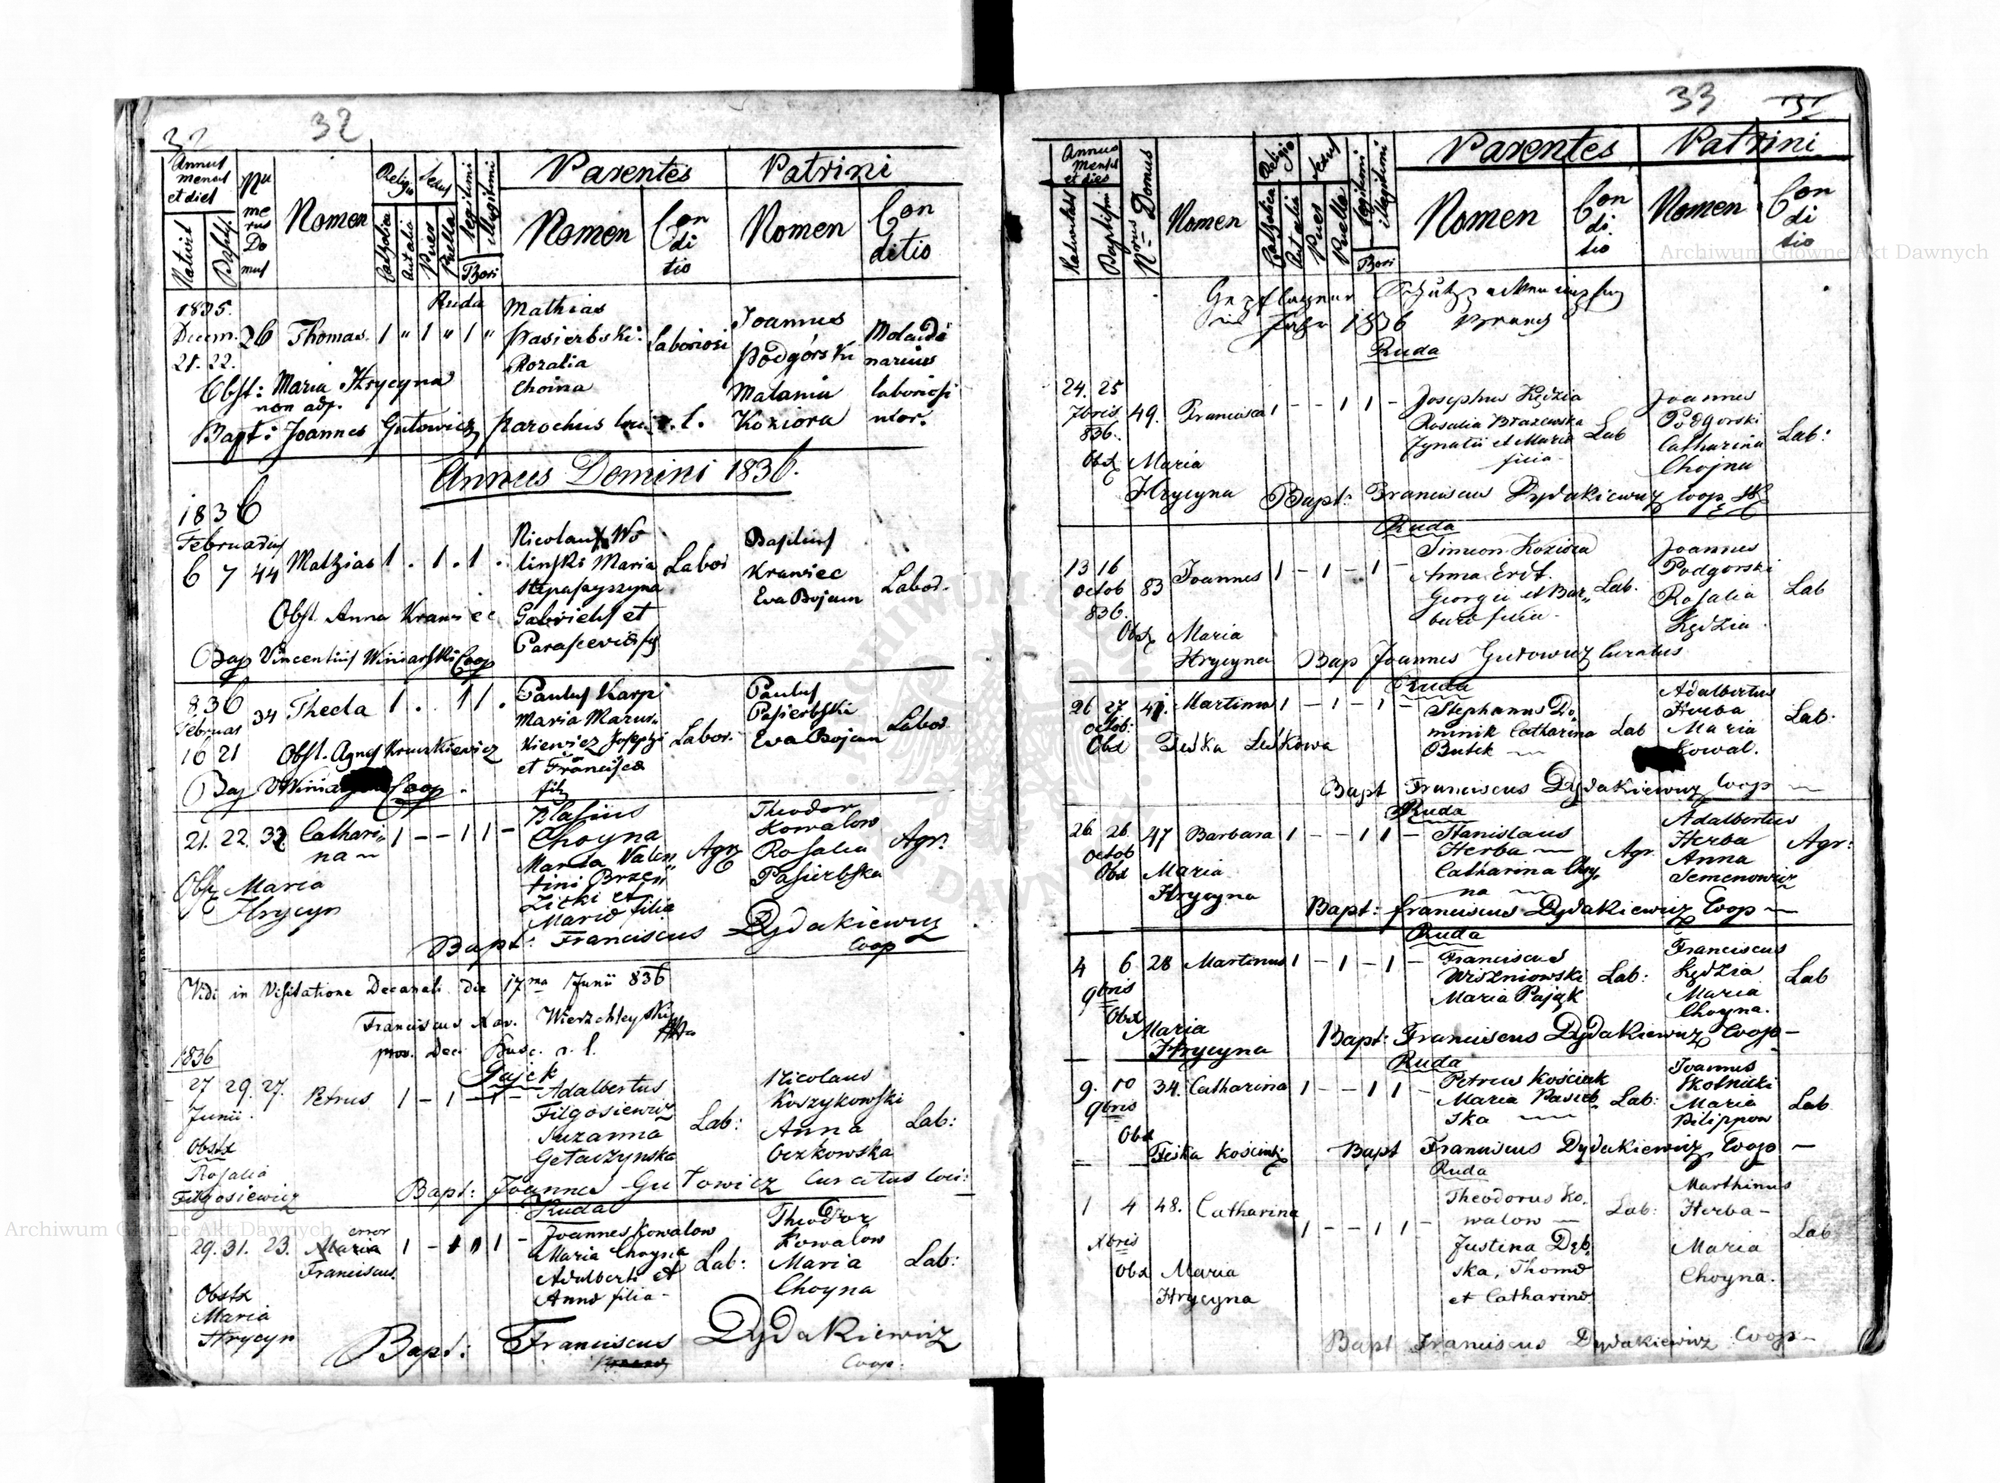 32 32
Annus mensis et dies
Nativit
Baptis
Numerus Domus
Nomen
Religio
Catholica
Aut alia
Sexus
Puer
Puella
Legitimi
Illegitimi
Thori
Parentes
Nomen
Conditio
Patrini
Nomen
Conditio
1835.
Decem.
21. 22.
26 Thomas. 1 " 1 " 1 "
Ruda
Mathias
Pasierbski
Rozalia
Choina
Laboriosi
Joannes
Podgórski
Malania
Koziora
laboriosi
Obst: Maria Hrycyna
non adp.
Bapt: Joannes Gutowicz parochus loci r. l.
Annus Domini 1836.
1836
Februarius
6 7 44 Mathias 1 . 1 . 1 .
Nicolaus Wo
linski Maria
Gabrielis et
Parasceviæ
Labor
Basilius
Krawiec
Eva Bojam
Labor.
Obst. Anna Krawiec
Bap Vincentius Winiarski Coop
836
Februar
16 21 34 Thecla 1 . . 1 1 .
Paulus Karpi
Maria Marus
kiewicz Josephi
et Franciscæ
filia
Labor.
Paulus
Pasierbski
Eva Bojam
Labor
Obst. Agnes Kruszkiewicz
Bap V Winiarski Coop.
21. 22 32 Cathari
na 1 - - 1 1 -
Blasius
Choyna
Marta Valen
tini Brzez
zicki et
Mariæ filia
Agr
Theodor
Kowalow
Rosalia
Pasierbska
Agr.
Obst Maria
Hrycyn
Bapt: Franciscus Dydakiewicz
Coop
Vidi in Visitatione Decanali die 17ma Junii 836
Franciscus Xav. Wierzchleyski
prov. Dec. Busc. r. l.
1836
27 29. 27.
Junii.
Petrus 1 - 1 - 1 -
Gajek
Adalbertus
Filgosiewicz
Suzanna
Getaczynska
Lab:
Nicolaus
Koszykowski
Anna
Oczkowska
Lab:
Obstx
Rosalia
Filgosiewicz
Bapt: Joannes Gutowicz Curatus loci:
Ruda
29. 31. 23.
error
Maria
Franciscus
Joannes Kowalow
Maria Choyna
Adalberti et
Annæ filia -
Lab:
Theodor
Kowalow
Maria
Choyna
Lab:
Obstx
Maria
Hrycyn
Bapt: Franciscus Dydakiewicz
Coop.
33 32
Annus mensis et dies
Nativitatis
Baptismi
Nrus Domus
Nomen
Religio
Catholica
Aut alia
Sexus
Puer
Puella
Legitimi
Illegitimi
Thori
Parentes
Nomen
Conditio
Patrini
Nomen
Conditio
im Jahr 1836
Ruda
24. 25
7bris
836.
49. Francisca 1 - - 1 1 -
Josephus Kędzia
Rosalia Brazewska
Ignatii et Mariæ
filia
Lab
Joannes
Podgorski
Catharina
Chojna
Lab:
Obst Maria
Hrycyna
Bapt: Franciscus Dydakiewicz Coop
Ruda
13 16
Octob
836.
83 Joannes 1 - 1 - 1 -
Simeon Koziora
Anna Erdt.
Georgii et Bar
baræ filia.
Lab.
Joannes
Podgorski
Rosalia
Kędzia.
Lab
Obst Maria
Hrycyna Bap Joannes Gutowicz Curatus
Ruda
26 27
Octob.
41. Martinus 1 - 1 - 1 -
Stephanus Do
minik Catharina
Butek
Lab
Adalbertus
Herba
Maria
Kowal.
Lab.
Obst
Bapt Franciscus Dydakiewicz Coop
Ruda
26 26
Octob
47 Barbara 1 - - 1 1 -
Stanislaus
Herba
Catharina Choy
na
Agr.
Adalbertus
Herba
Anna
Semenowicz
Agr:
Obst Maria
Hrycyna
Bapt: Franciscus Dydakiewicz Coop
Ruda
4 6
9bris
28 Martinus 1 - 1 - 1 -
Franciscus
Wiszniowski
Maria Pająk
Lab:
Franciscus
Kędzia
Maria
Choyna.
Lab
Obst Maria
Hrycyna
Bapt: Franciscus Dydakiewicz Coop
Ruda
9. 10
9bris
34. Catharina 1 - - 1 1 -
Petrus Kościuk
Maria Pasieb
ska
Lab:
Joannes
Skolnicki
Maria
Pilippow
Lab
Obst
Bapt Franciscus Dydakiewicz Coop
Ruda
1 4
Xbris
48. Catharina 1 - - 1 1 -
Theodorus Ko
walow
Justina Dęb
ska, Thomæ
et Catharinæ.
Lab:
Marthinus
Herba -
Maria
Choyna.
Lab
Obst Maria
Hrycyna
Bapt Franciscus Dydakiewicz Coop
Archiwum Główne Akt Dawnych
Archiwum Główne Akt Dawnych